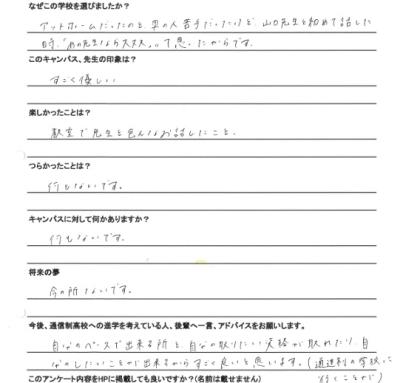 なぜこの学校を選びましたか？
アットホームだったのと、男の人苦手だったけど、山口先生と初めて話した
時、「あの先生なら大丈夫」って思ったからです。
このキャンパス、先生の印象は？
すごく優しい
楽しかったことは？
教室で先生と色んなお話したこと、
つらかったことは？
何もないです。
キャンパスに対して何かありますか？
何もないです。
将来の夢
今の所ないです。
今後、通信制高校への進学を考えている人、後輩へ一言、アドバイスをお願いします。
自分のペースで出来る所と自分の取りたい資格が取れたり、自
分のしたいことが出来るからすごく良いと思います。(通信制の学校に
行くことが)
このアンケート内容をHPに掲載しても良いですか？(名前は載せません)